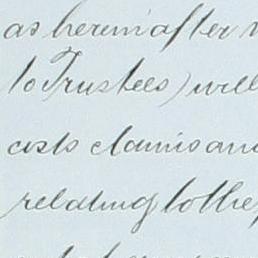 as hereinafter
to Trustees) will
costs claims and
relating to the